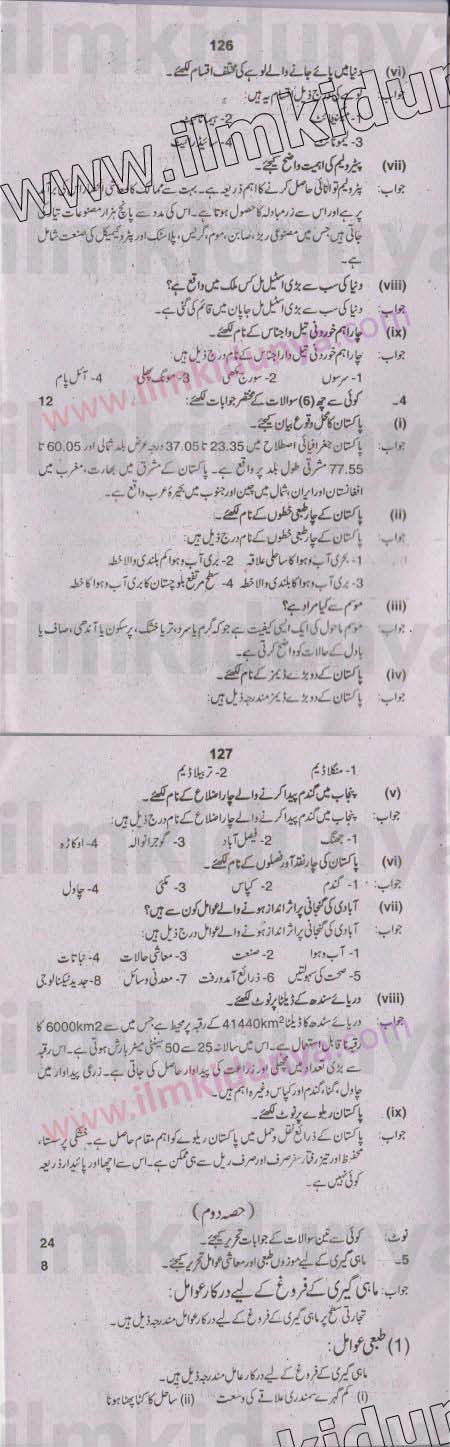 126
(vi) دنیا میں پائے جانے والے لوہے کی مختلف اقسام لکھئے۔
جواب: لوہے کی درج ذیل اقسام یہ ہیں:
1- میگنیٹائٹ 2- ہیماٹائٹ
3- لیمونائٹ 4- سائیڈرائیٹ
(vii) پٹرولیم کی اہمیت واضح کیجئے۔
جواب: پٹرولیم توانائی حاصل کرنے کا اہم ذریعہ ہے۔ بہت سے ممالک کا معاشی انحصار اس کی برآمد
پر ہے اور اس سے زرمبادلہ کا حصول ہوتا ہے۔ اس کی مدد سے پانچ ہزار مصنوعات تیار کی
جاتی ہیں جس میں مصنوعی ربڑ، صابن، موم، گریس، پلاسٹک اور پٹروکیمیکل کی صنعت شامل
ہے۔
(viii) دنیا کی سب سے بڑی اسٹیل مل کس ملک میں واقع ہے؟
جواب: دنیا کی سب سے بڑی اسٹیل مل جاپان میں قائم کی گئی ہے۔
(ix) چار اہم خوردنی تیل دار اجناس کے نام لکھئے۔
جواب: چار اہم خوردنی تیل دار اجناس کے نام درج ذیل ہیں:
1- سرسوں 2- سورج مکھی 3- مونگ پھلی 4- آئل پام
4- کوئی سے چھ (6) سوالات کے مختصر جوابات لکھئے: 12
(i) پاکستان کا محل وقوع بیان کیجئے۔
جواب: پاکستان جغرافیائی اصطلاح میں 23.35 تا 37.05 درجہ عرض بلد شمالی اور 60.05 تا
77.55 مشرقی طول بلد پر واقع ہے۔ پاکستان کے مشرق میں بھارت، مغرب میں
افغانستان اور ایران، شمال میں چین اور جنوب میں بحیرۂ عرب واقع ہے۔
(ii) پاکستان کے چار طبعی خطوں کے نام لکھئے۔
جواب: پاکستان کے چار طبعی خطوں کے نام درج ذیل ہیں:
1- بحری آب و ہوا کا ساحلی علاقہ 2- بری آب و ہوا کم بلندی والا خطہ
3- بری آب و ہوا کا بلندی والا خطہ 4- سطح مرتفع بلوچستان کا بری آب و ہوا کا خطہ
(iii) موسم سے کیا مراد ہے؟
جواب: موسم ماحول کی ایک ایسی کیفیت ہے جو کہ گرم یا سرد، تر یا خشک، پرسکون یا آندھی، صاف یا
بادل کے حالات کو واضح کرتی ہے۔
(iv) پاکستان کے دو بڑے ڈیمز کے نام لکھئے۔
جواب: پاکستان کے دو بڑے ڈیمز مندرجہ ذیل ہیں:
127
1- منگلا ڈیم 2- تربیلا ڈیم
(v) پنجاب میں گندم پیدا کرنے والے چار اضلاع کے نام لکھئے۔
جواب: پنجاب میں گندم پیدا کرنے والے چار اضلاع کے نام درج ذیل ہیں:
1- جھنگ 2- فیصل آباد 3- گوجرانوالہ 4- اوکاڑہ
(vi) پاکستان کی چار نقد آور فصلوں کے نام لکھئے۔
جواب: 1- گندم 2- کپاس 3- مکئی 4- چاول
(vii) آبادی کی گنجانی پر اثر انداز ہونے والے عوامل کون سے ہیں؟
جواب: آبادی کی گنجانی پر اثر انداز ہونے والے عوامل درج ذیل ہیں:
1- آب و ہوا 2- صنعت 3- معاشی حالات 4- نباتات
5- صحت کی سہولتیں 6- ذرائع آمدورفت 7- معدنی وسائل 8- جدید ٹیکنالوجی
(viii) دریائے سندھ کے ڈیلٹا پر نوٹ لکھئے۔
جواب: دریائے سندھ کا ڈیلٹا 41440km² کے رقبہ پر محیط ہے جس میں سے 6000km2 کا
رقبہ ناقابل استعمال ہے۔ اس میں سالانہ 25 سے 50 سینٹی میٹر بارش ہوتی ہے۔ اس رقبہ
سے بڑی تعداد میں مچھلی اور زراعت کی پیداوار حاصل کی جاتی ہے۔ زرعی پیداوار میں
چاول، گنا، گندم اور کپاس وغیرہ اہم ہیں۔
(ix) پاکستان ریلوے پر نوٹ لکھئے۔
جواب: پاکستان کے ذرائع نقل و حمل میں پاکستان ریلوے کو اہم مقام حاصل ہے۔ خشکی پر سستا،
محفوظ اور تیز رفتار سفر صرف اور صرف ریل سے ہی ممکن ہے۔ اس سے اچھا اور پائیدار ذریعہ
کوئی نہیں ہے۔
(حصہ دوم)
نوٹ: کوئی سے تین سوالات کے جوابات تحریر کیجئے۔ 24
5- ماہی گیری کے لیے موزوں طبعی اور معاشی عوامل تحریر کیجئے۔ 8
جواب: ماہی گیری کے فروغ کے لیے درکار عوامل:
تجارتی سطح پر ماہی گیری کے فروغ کے لیے درکار عوامل مندرجہ ذیل ہیں۔
(1) طبعی عوامل:
ماہی گیری کے فروغ کے لیے درکار عامل مندرجہ ذیل ہیں۔
(i) کم گہرے سمندری علاقے کی وسعت (ii) ساحل کا کٹا پھٹا ہونا
www.ilmkidunya.com